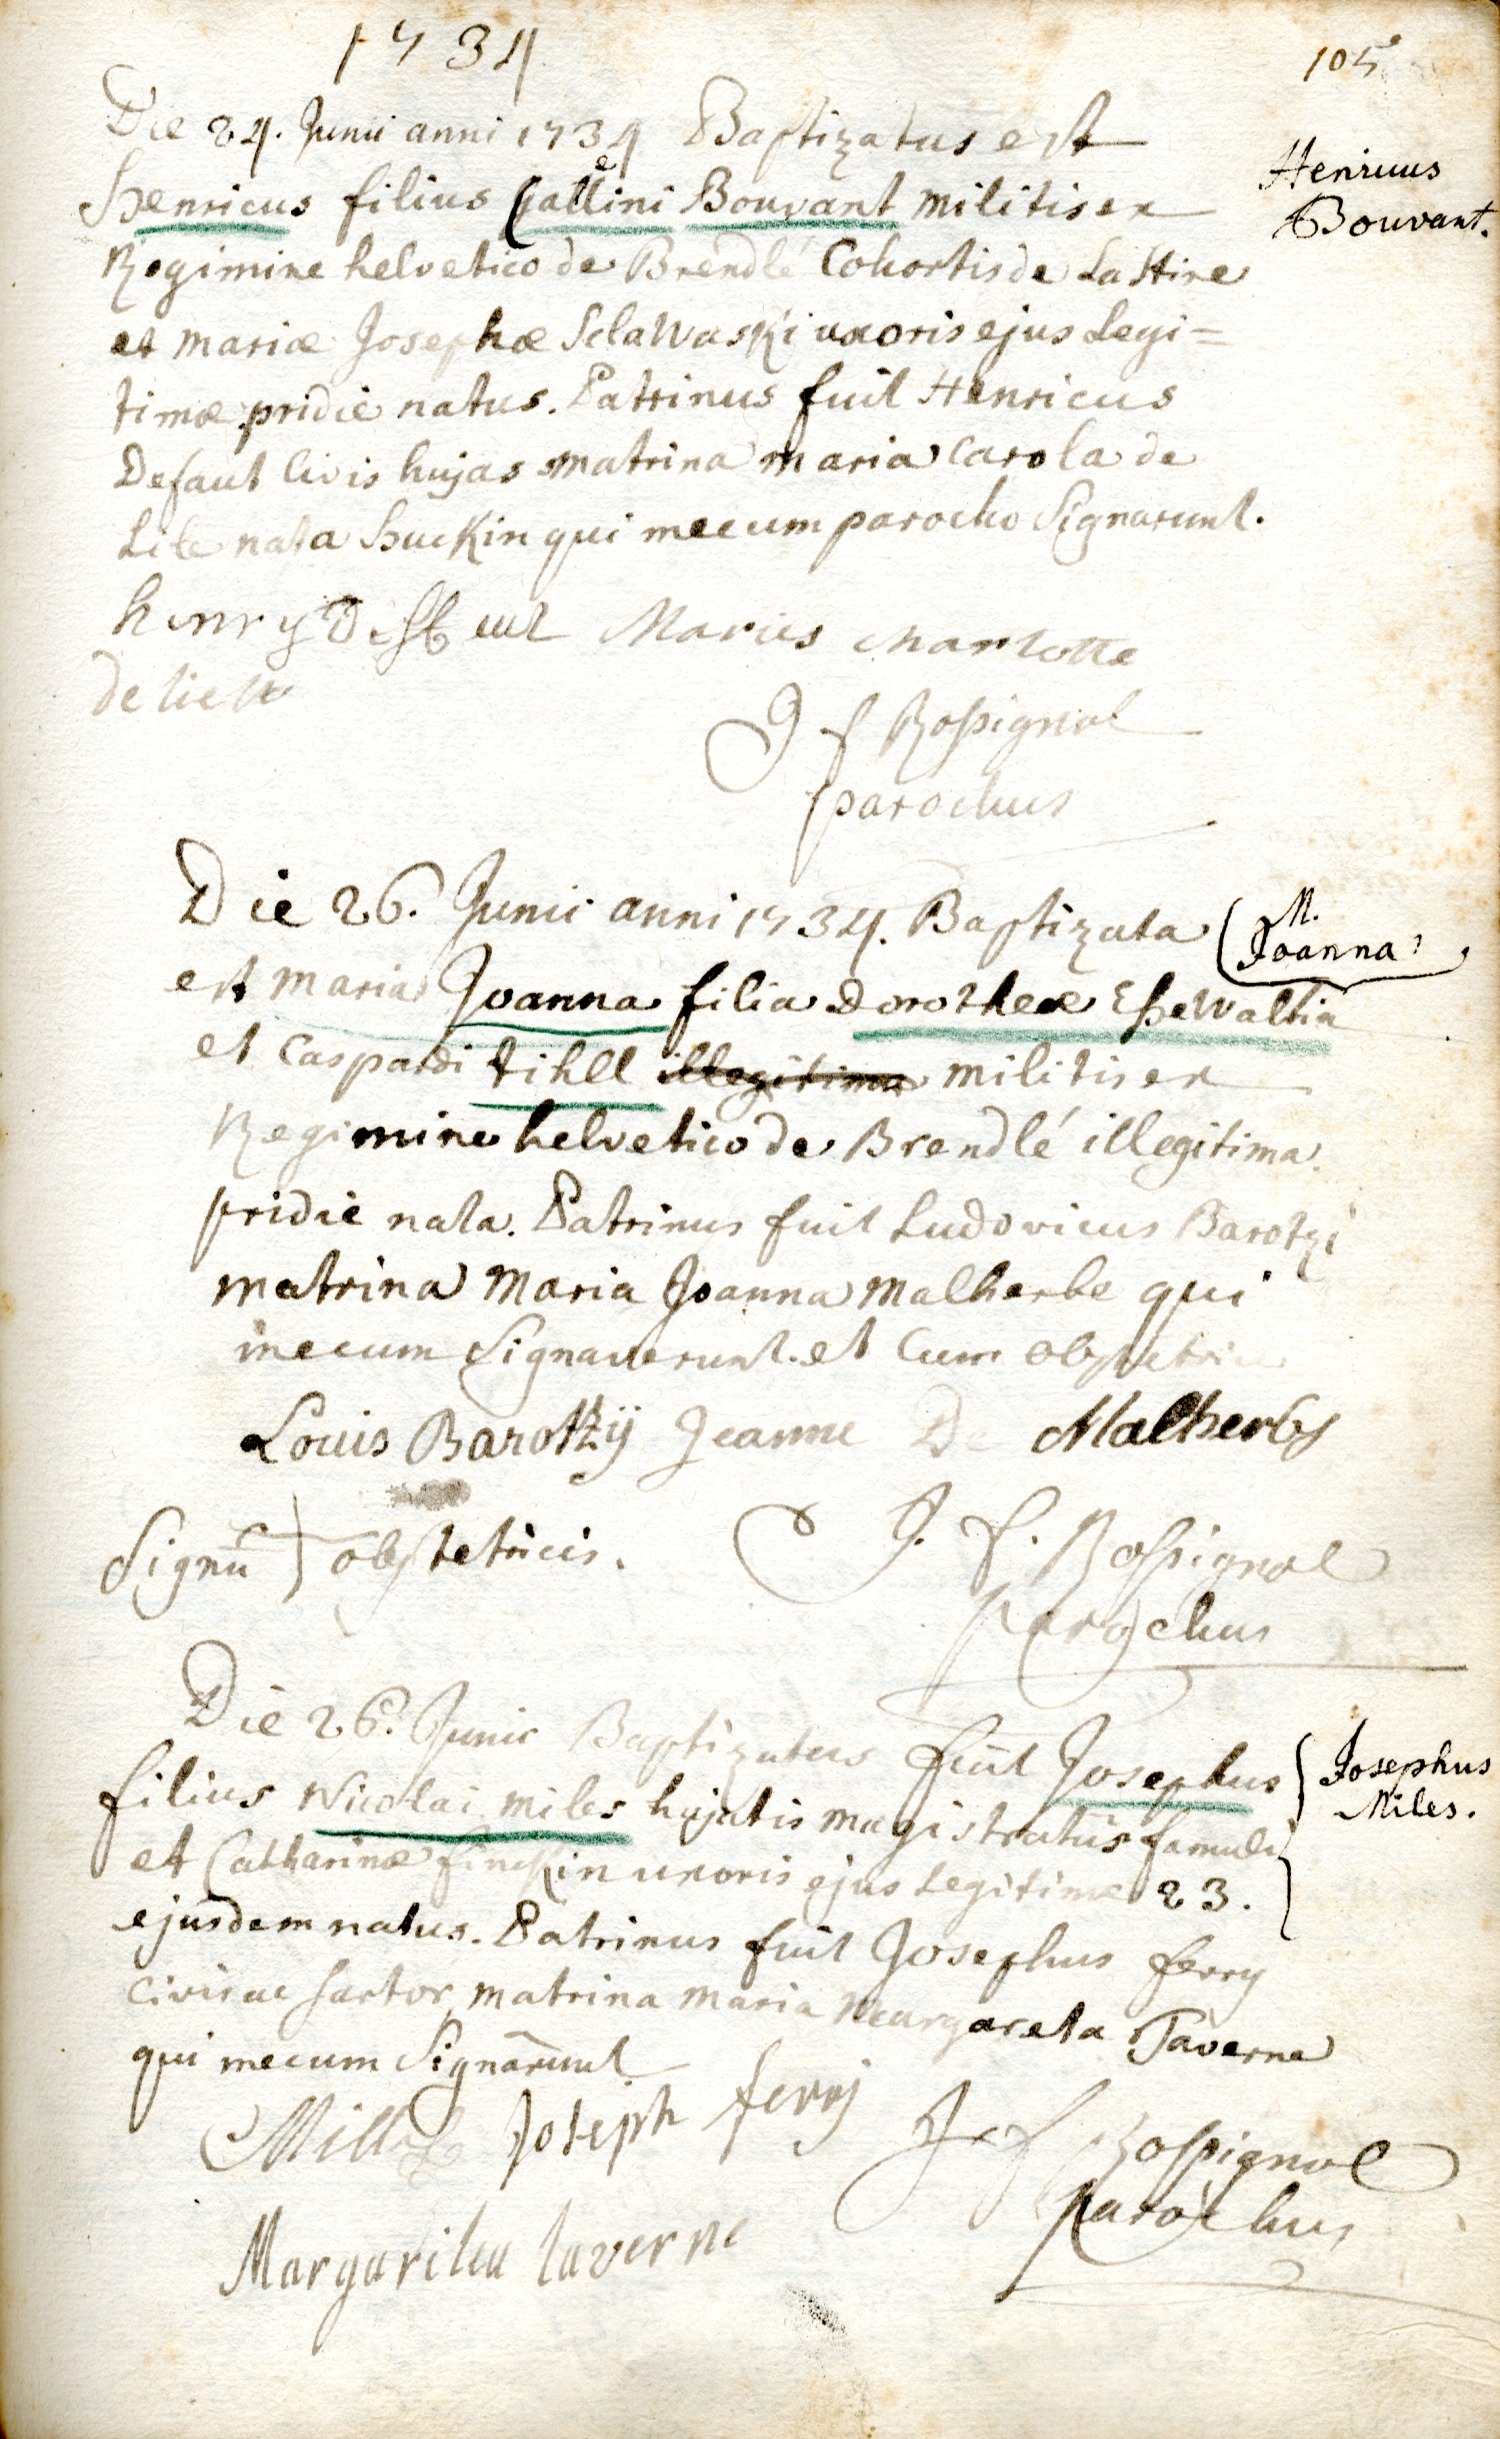 1734
105
Die 24. Junii anni 1734 Baptizatus est
Henricus filius Gallini Bouvant militis ex
Henricus
Bouvant.
Regimine helvetico de Brendlé Cohortis de La Hire
et mariæ Josephæ Sclawaski uxoris ejus Legi=
timæ pridie natus. Patrinus fuit Henricus
Defaut Civis hujas matrina maria Carola de
nata huckin qui mecum parocho Signarunt.
henry Maries charlotte
J f Rossignol
parochus
Die 26. Junii anni 1734. Baptizata
M.
Joanna
est maria Joanna filia Dorotheæ
et Caspardi tihll illegitima militis ex
Regimine helvetico de Brendlé illegitima
pridie nata. Patrinus fuit Ludovicus Barotzi
matrina Maria Joanna Malherbe qui
mecum Signaverunt et Cum obstetrice
Louis Barottzÿ Jeanne De Malherbs
Signū obstetricis.
J. f. Rossignol
parochus
Die 26. Junii Baptizatus fuit Josephus
Josephus
Miles.
filius Nicolai miles hujatis magistratus famuli
et Catharinæ finckin uxoris ejus Legitimæ 23.
ejusdem natus. Patrinus fuit Josephus ferry
Civis ac sartor matrina maria Margareta Taverne
qui mecum Signarunt
Joseph ferry
J f Rossignol
parochus
Margarita taverne